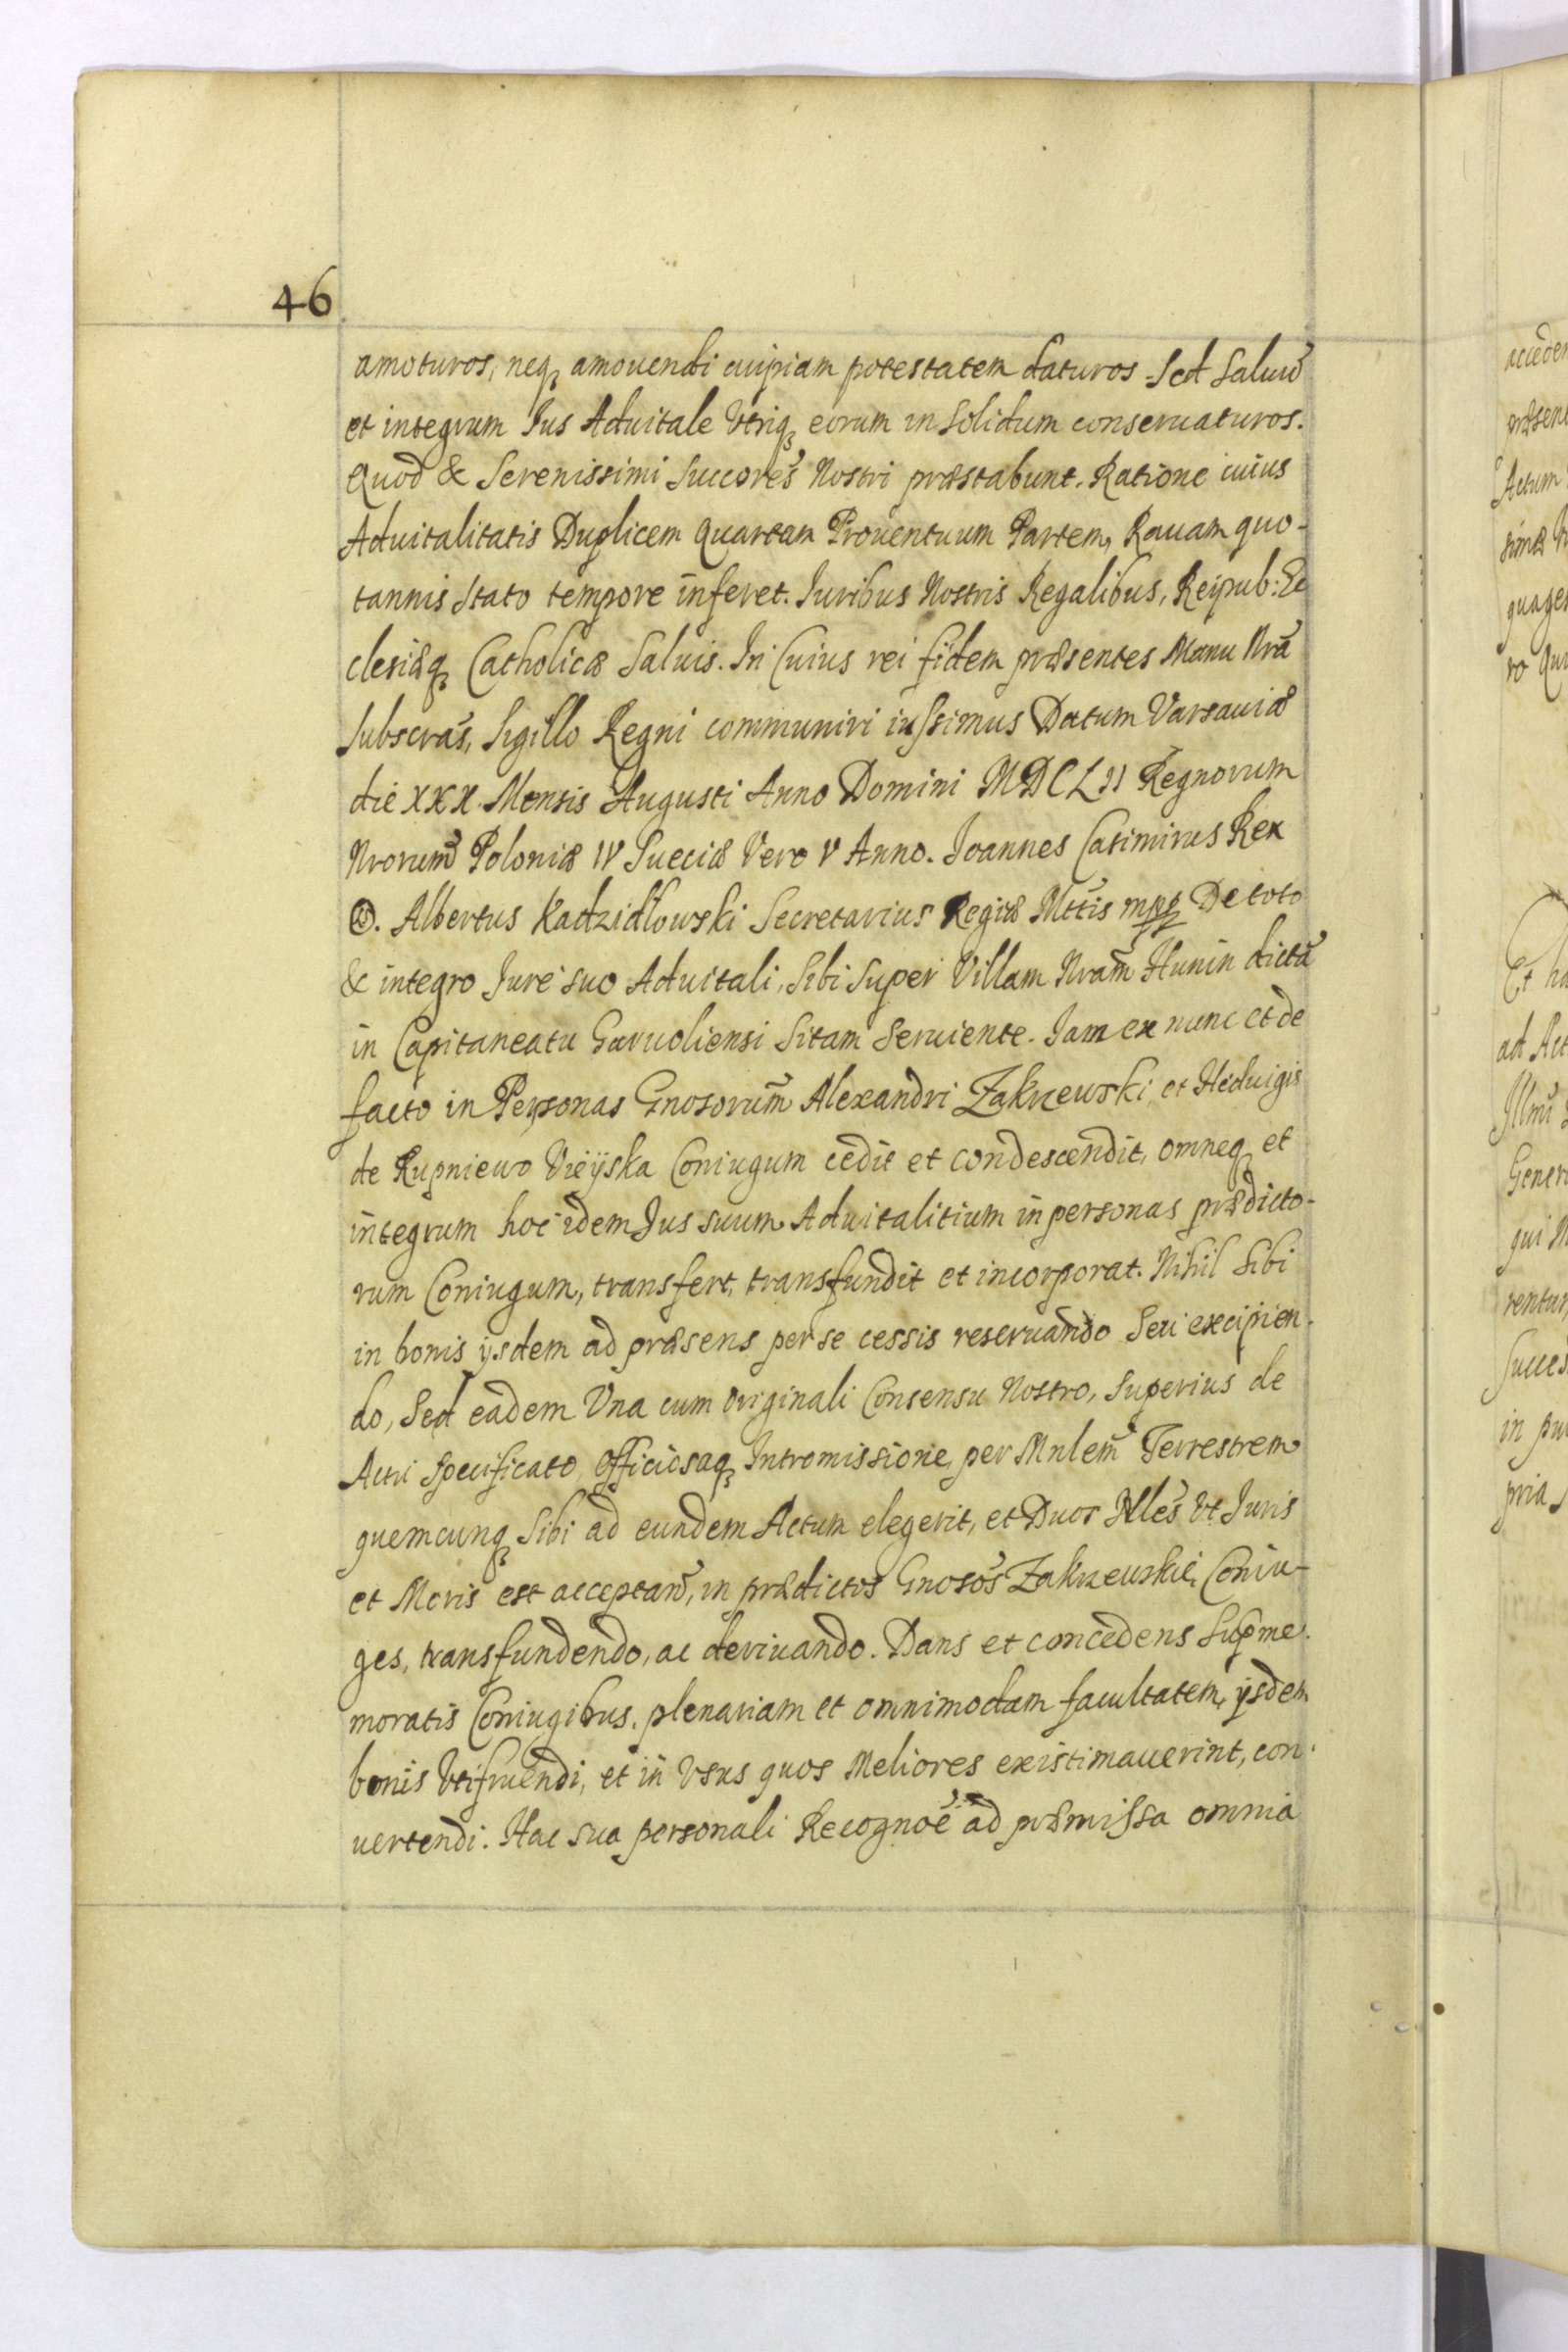 46
amoturos, neq₃ amouendi cuipiam potestatem daturos Sed Saluũ
et integrum Ius Aduitale Vtriq₃ eorum in Solidum conseruaturos.
Quod & Serenissimi Succorẽs Nostri præstabunt. Ratione cuius
Aduitalitatis Duplicem Quartam Prouentuum Partem, Rauam quo-
tannis Stato tempore inferet. Iuribus Nostris Regalibus, Reipub: Ec
clesiæq₃ Catholicæ Saluis. In Cuius rei fidem præsentes Manu Nrã
Subscras̃, Sigillo Regni communiri iussimus Datum Varsauiæ
die XXX. Mensis Augusti Anno Domini MDCLII Regnorum
Nrorum̃ Poloniæ IV Sueciæ Vero V Anno. Joannes Casimirus Rex
Albertus Kadzidłowski Secretarius Regiæ Mttis mpp De toto
& integro Jure suo Aduitali, Sibi Super Villam Nram̃ Hunin dictã
in Capitaneatu Garuoliensi Sitam Seruiente. Jam ex nunc et de
facto in Personas Gnosorum̃ Alexandri Zakrzewski et Heduigis
de Rupniewo Vieÿska Coniugum cedit et condescendit, omneq₃ et
integrum hoc idem Jus suum Aduitalitium in personas prædicto-
rum Coniugum, transfert, transfundit et incorporat. Nihil Sibi
in bonis ijsdem ad præsens per se cessis reseruando Seu excipien-
do, Sed eadem Vna cum Originali Consensu Nostro, Superius de
Actu Specificato, Officiosaq₃ Intromissione, per Mnlem̃ Terrestrem
quemcunq₃ Sibi ad eundem Actum elegerit, et Duos Nles̃ Vt Juris
et Moris est acceptañ, in prædictos Gnosos̃ Zakrzewskie Coniu-
ges, transfundendo, ac deriuando. Dans et concedens Supme-
moratis Coniugibus, plenariam et omnimodam facultatem, ijsdem
bonis Vtifruendi, et in Vsus quos Meliores existimauerint, con-
uertendi. Hac sua personali Recognoẽ ad præmissa omnia